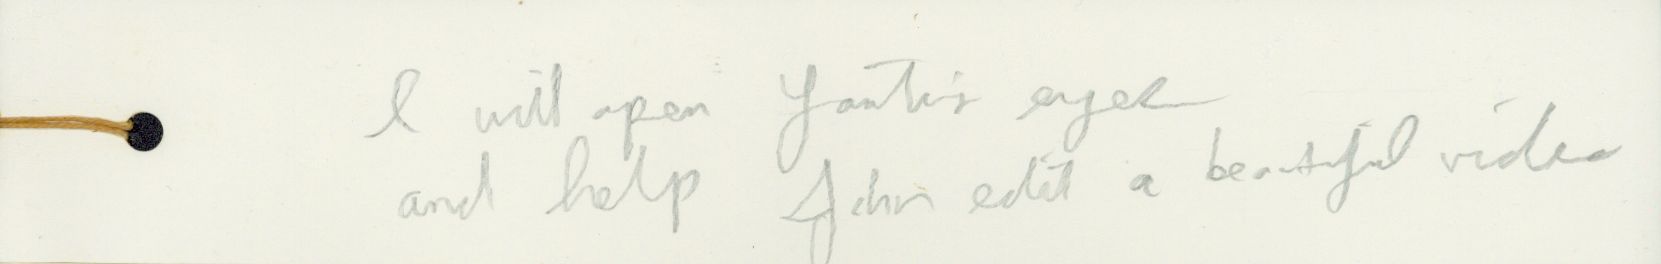 I will open eyes
and help John edit a beautiful video